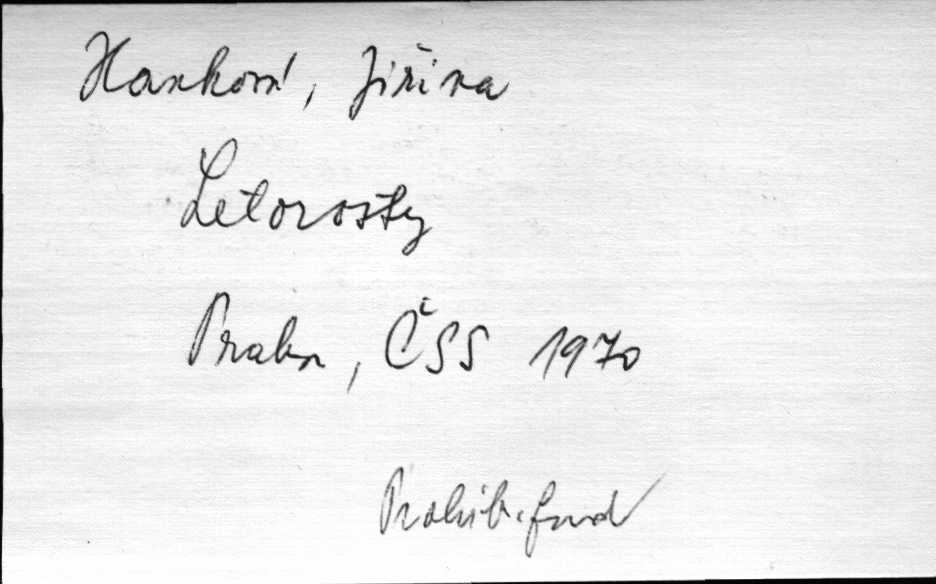 Hanková, Jiřina
Letorosty
Praha, ČSS 1970
Prohib. fond